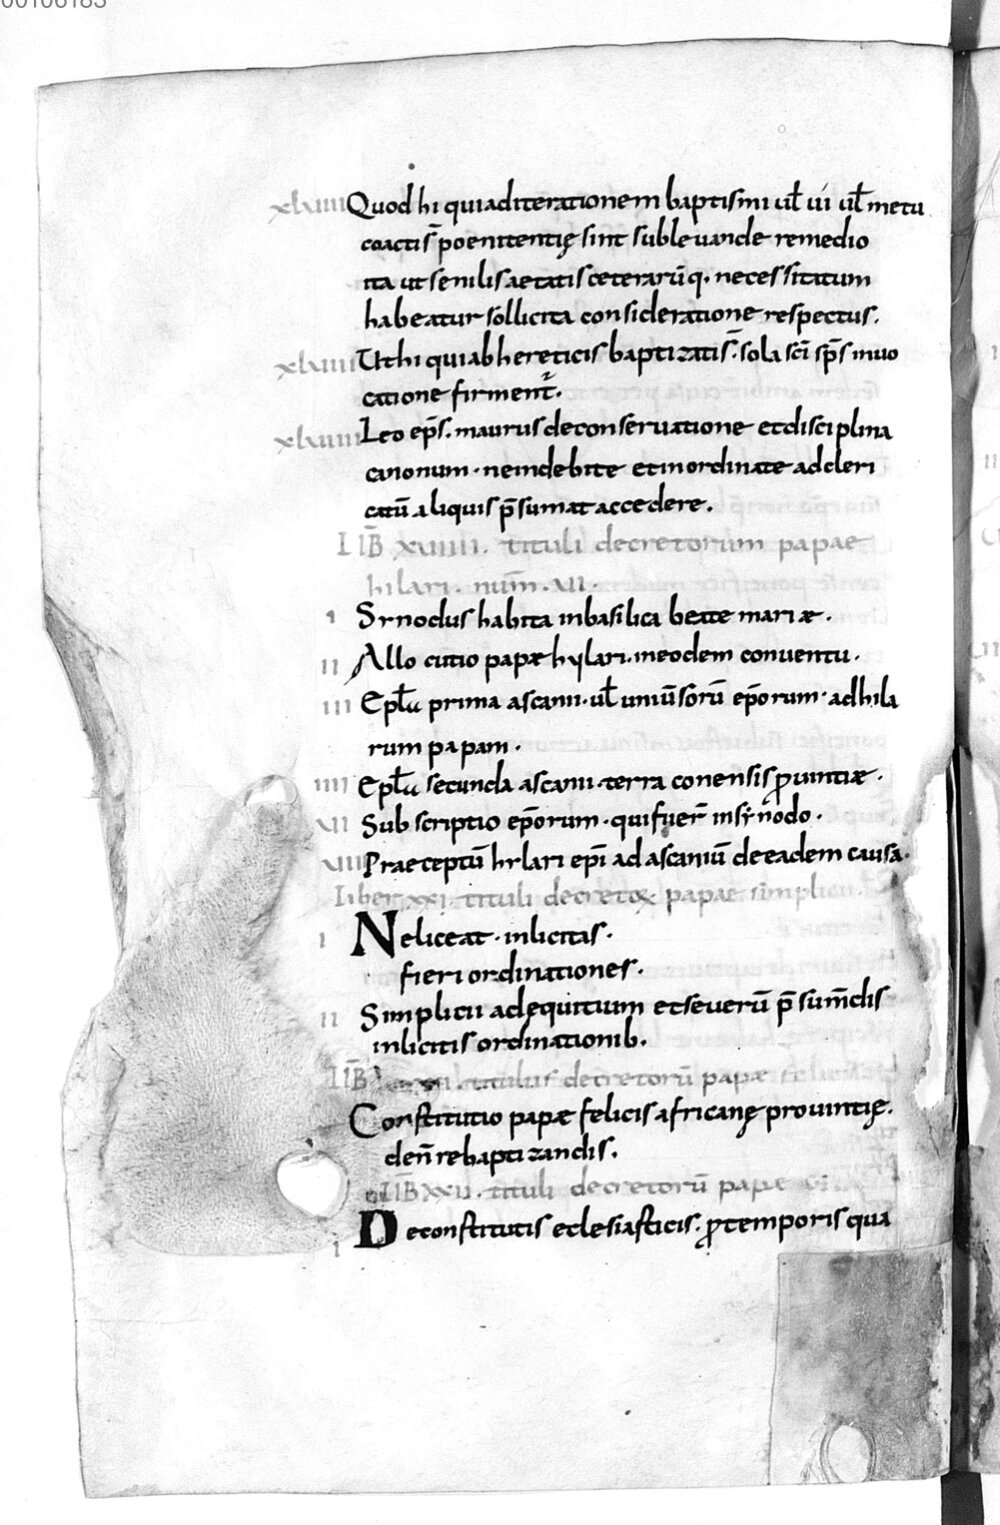 00106183
xlviii Quod hi qui ad iterationem baptismi ul̄ ui ul̄ metu
coactis p̄oenitentię sint subleuande remedio
ita ut senilis aetatis ceterarūq. necessitatum
habeatur sollicita consideratione respectus.
xlviiii Ut hi qui ab hereticis baptizatis. sola sc̄i sp̄s inuo
catione firment̄.
xlviiii Leo ep̄s. maurus de conseruatione et disciplina
canonum. ne indebite et inordinate ad cleri
catū aliquis p̄sumat accedere.
LIB̄ xuiiii. tituli decretorum papae
hilari. num̄. uii.
i Synodus habita in basilica beate mariæ.
ii Allocutio papæ hylari. in eodem conuentu.
iii Ep̄la prima ascanii. ul̄ uniūsorū ep̄orum. ad hila
rum papam.
iiii Ep̄la secunda ascanii. terraconensis prouintiæ.
uii Subscriptio ep̄orum. qui fuer̄ in synodo.
uiii Praeceptū hylari ep̄i ad ascaniū de eadem causa.
Liber xxi. tituli decretoꝝ papae simplicii.
i Ne liceat. inlicitas.
fieri ordinationes.
ii Simplicii ad equitium et seuerū p̄sum̄dis
inlicitis ordinationib.
LIB̄ titulus decretorū papæ felicis
Constitutio papæ felicis africanę prouintię.
den̄ rebaptizandis.
LIB̄ XXII. tituli decretorū papæ
i De constitutis eclesiasticis. ꝓ temporis qua